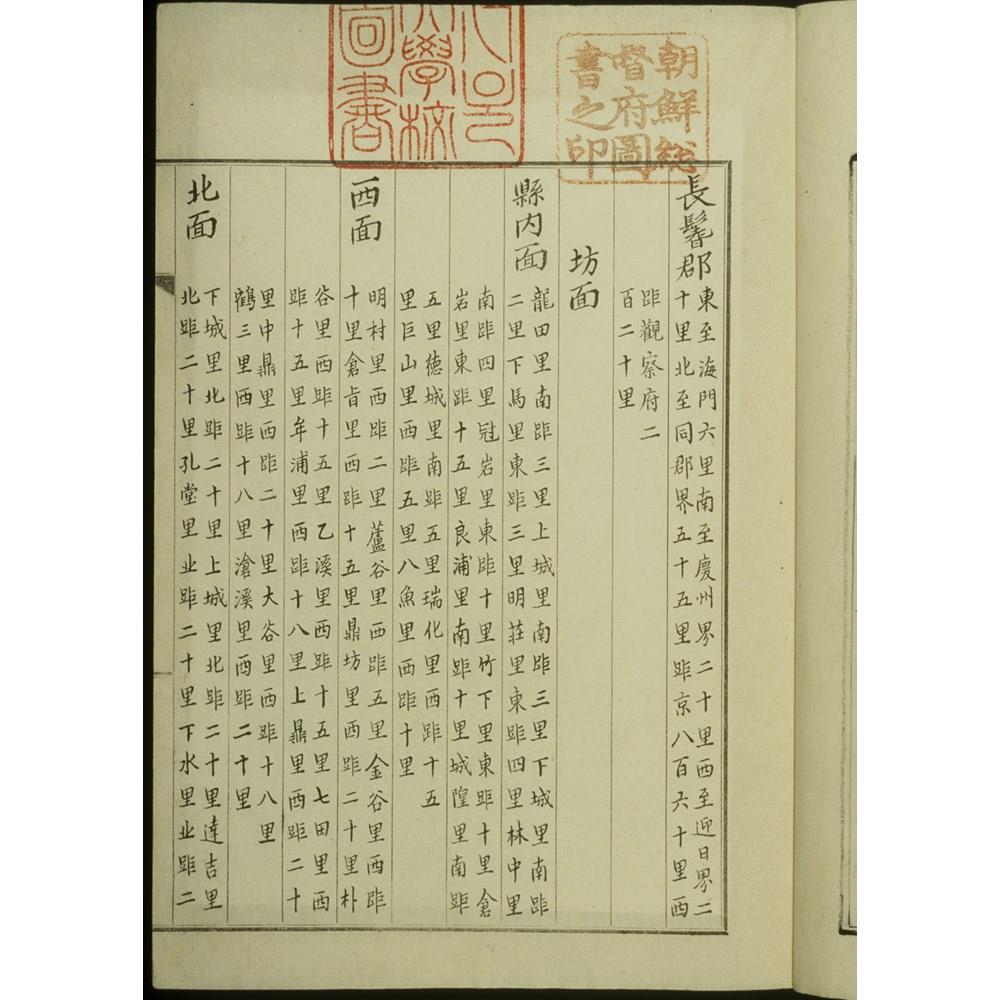 朝鮮総
督府圖
書之印
學校
圖書
長鬐郡
東至海門六里南至慶州界二十里西至迎日界二
十里北至同郡界五十五里距京八百六十里西
距觀察府二
百二十里
坊面
縣内面
龍田里南距三里上城里南距三里下城里南距
二里下馬里東距三里明荘里東距四里林中里
南距四里冠岩里東距十里竹下里東距十里倉
岩里東距十五里良浦里南距十里城隍里南距
五里徳城里南距五里瑞化里西距十五
里巨山里西距五里八魚里西距十里
西面
明村里西距二里蘆谷里西距五里金谷里西距
十里倉旨里西距十五里鼎坊里西距二十里朴
谷里西距十五里乙溪里西距十五里七田里西
距十五里牟浦里西距十八里上鼎里西距二十
里中鼎里西距二十里大谷里西距十八里
鶴三里西距十八里滄溪里西距二十里
北面
下城里北距二十里上城里北距二十里達吉里
北距二十里孔堂里北距二十里下水里北距二